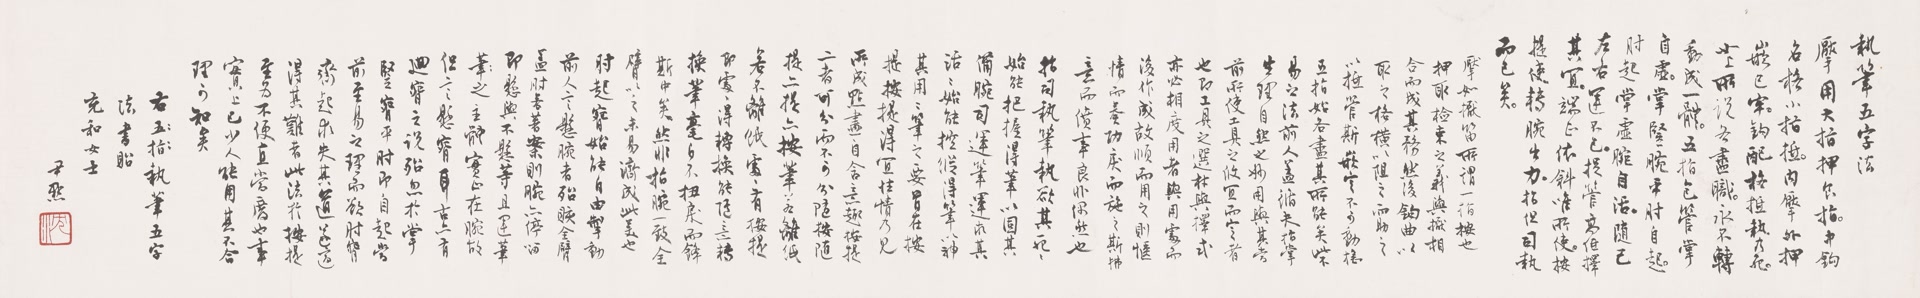 執筆五字法
擫用大指押食指中鉤
名格小指抵內擫外押
嵌已牢鉤配格抵執乃死
小上所說各盡職水不轉
動成一體五指包管掌
自虛掌豎腕平肘自起
肘起掌虛腕自活隨己
左右運不已提管高低擇
其宜端正依斜唯所使按
提使轉腕出力指但司執
而已矣
擫如擫笛所謂指按也
押取檢束之義與擫相
合而成其務然後鉤曲以
取之格橫以阻之而助之
以抵管斯嵌定不可動搖
五指始各盡其所能矣此
易之法前人盖循夫指掌
生理自然之妙用與其當
前所使工具之攸宜而定者
也即工具之選材與擇式
亦必相度用者與用處而
後作成故順而用之則愜
情而奏功戾而施之斯拂
意而僨事良非偶然也
指司執筆執欲其死
始能把握得筆以固其
備腕司運筆運求其
活活始能控縱得筆以神
其用用筆之要首在按
提按提得宜性情乃見
所成點畫自合意趣按提
二者可分而不可分隨按隨
提亦提亦按筆若離紙
若不離紙處有按提
即處處得轉換能隨意轉
換筆毫自不扭戾而鋒
斯中矣然非指腕一致全
臂以之未易濟成此美也
肘起窩始能自由掣動
前人言懸腕者殆賅全臂
盖肘書著案則腕亦停留
即懸與不懸等且運筆
筆之主體實正在腕故
但言懸腕耳古亦有
迴腕之說殆忽於掌
豎腕平肘即自起當
前至易之理而欲肘臂
齊起求失其道遠
得其難者此法於按提
至為不便直當廢也事
實上已少人能用其不合
理可知矣
右五指執筆五字
法書貽
充和女士
尹默